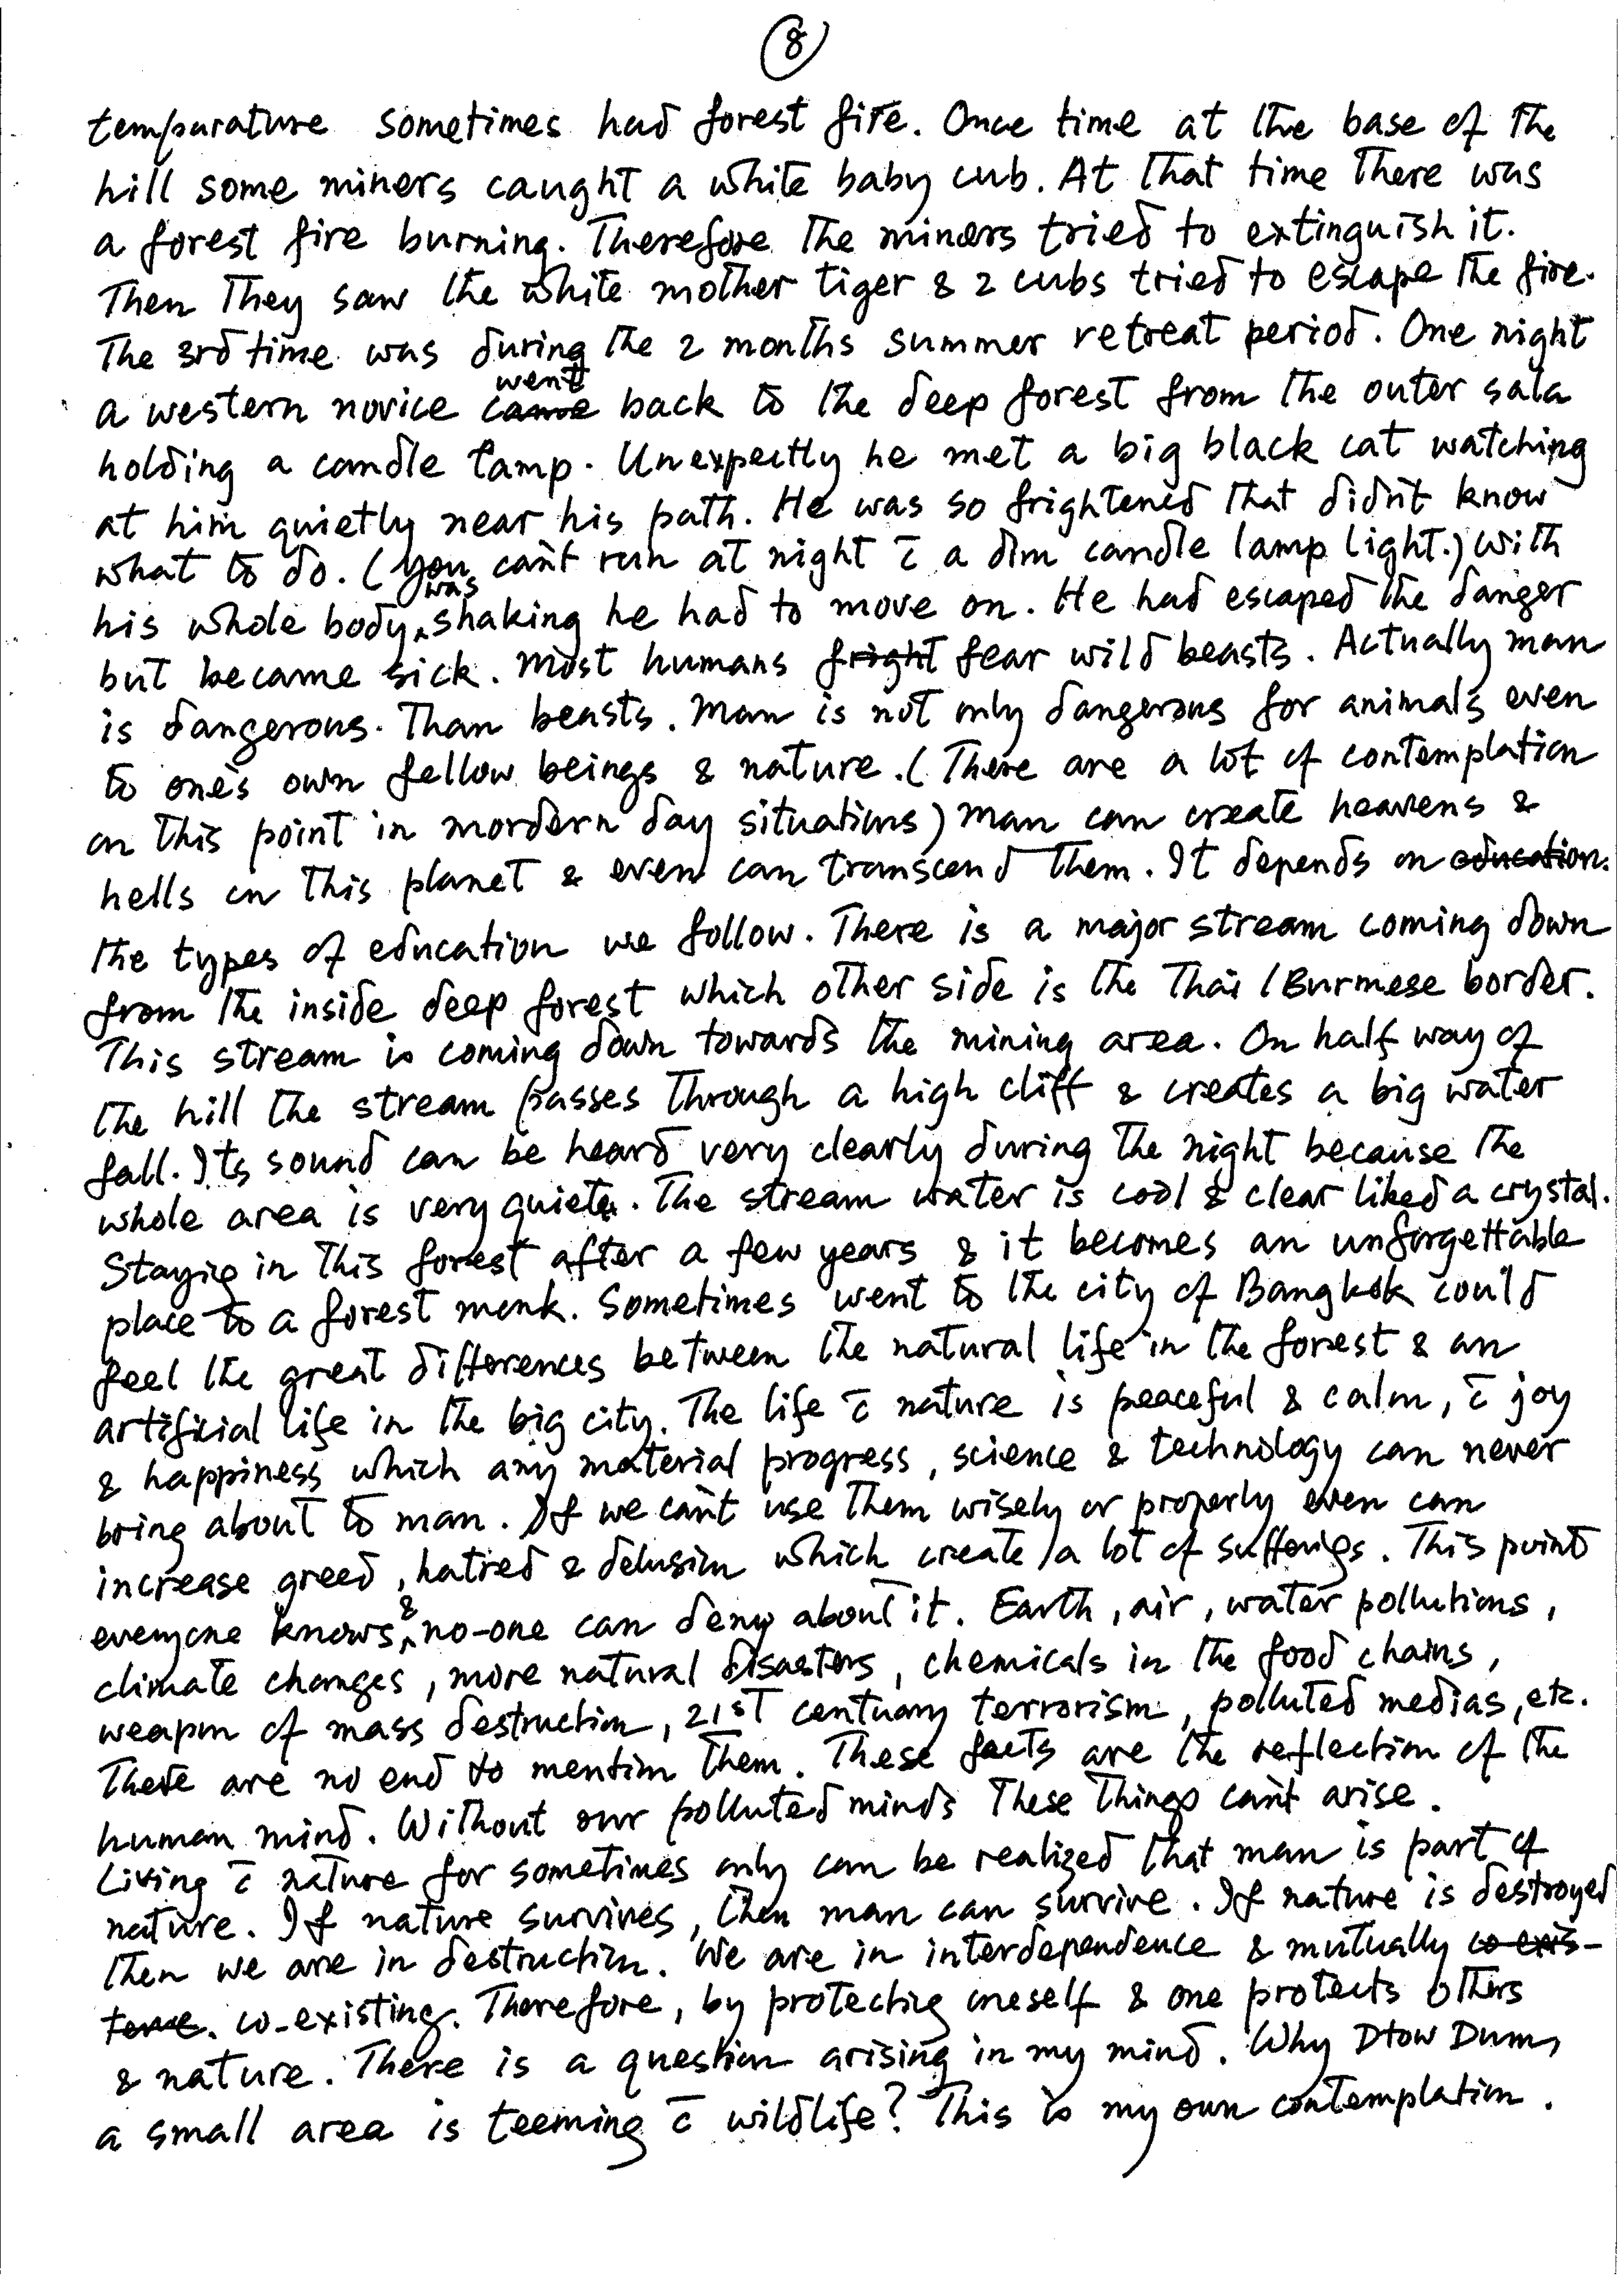 8
temparature sometimes had forest fire. Once time at the base of the
hill some miners caught a white baby cub. At that time there was
a forest fire burning. Therefore the miners tried to extinguish it.
Then they saw the white mother tiger & 2 cubs tried to escape the fire.
The 3rd time was during the 2 months summer retreat period. One night
a western novice came went back to the deep forest from the outer sala
holding a candle lamp. Unexpectly he met a big black cat watching
at him quietly near his path. He was so frightened that didn't know
what to do. (you can't run at night c̄ a dim candle lamp light.) With
his whole body was shaking he had to move on. He had escaped the danger
but became sick. Most humans fright fear wild beasts. Actually man
is dangerous. Than beasts. Man is not only dangerous for animals even
to one's own fellow beings & nature. (There are a lot of contemplation
on this point in mordern day situations) Man can create heavens &
hells on this planet & even can transcend them. It depends on education.
the types of education we follow. There is a major stream coming down
from the inside deep forest which other side is the Thai / Burmese border.
This stream is coming down towards the mining area. On half way of
the hill the stream passes through a high cliff & creates a big water
fall. Its sound can be heard very clearly during the night because the
whole area is very quiete. The stream water is cool & clear liked a crystal.
Stayig in this forest after a few years & it becomes an unforgettable
place to a forest monk. Sometimes went to the city of Bangkok could
feel the great differences between the natural life in the forest & an
artificial life in the big city. The life c̄ nature is peaceful & calm, c̄ joy
& happiness which any material progress, science & technology can never
bring about to man. If we can't use them wisely or properly even can
increase greed, hatred & delusion which create a lot of sufferigs. This point
everyone knows, & no-one can deny about it. Earth, air, water pollutions,
climate changes, more natural disasters, chemicals in the food chains,
weapon of mass destruction, 21st centuary terrorism, polluted medias, etc.
There are no end to mention them. These facts are the reflection of the
human mind. Without our polluted minds these things can't arise.
Living c̄ nature for sometimes only can be realized that man is part of
nature. If nature survives, then man can survive. If nature is destroyed
then we are in destruction. We are in interdependence & mutually co-exis-
tence. co-existing. Therefore, by protectig oneself & one protects others
& nature. There is a question arising in my mind. Why Dtow Dum,
a small area is teeming c̄ wildlife? This is my own contemplation.